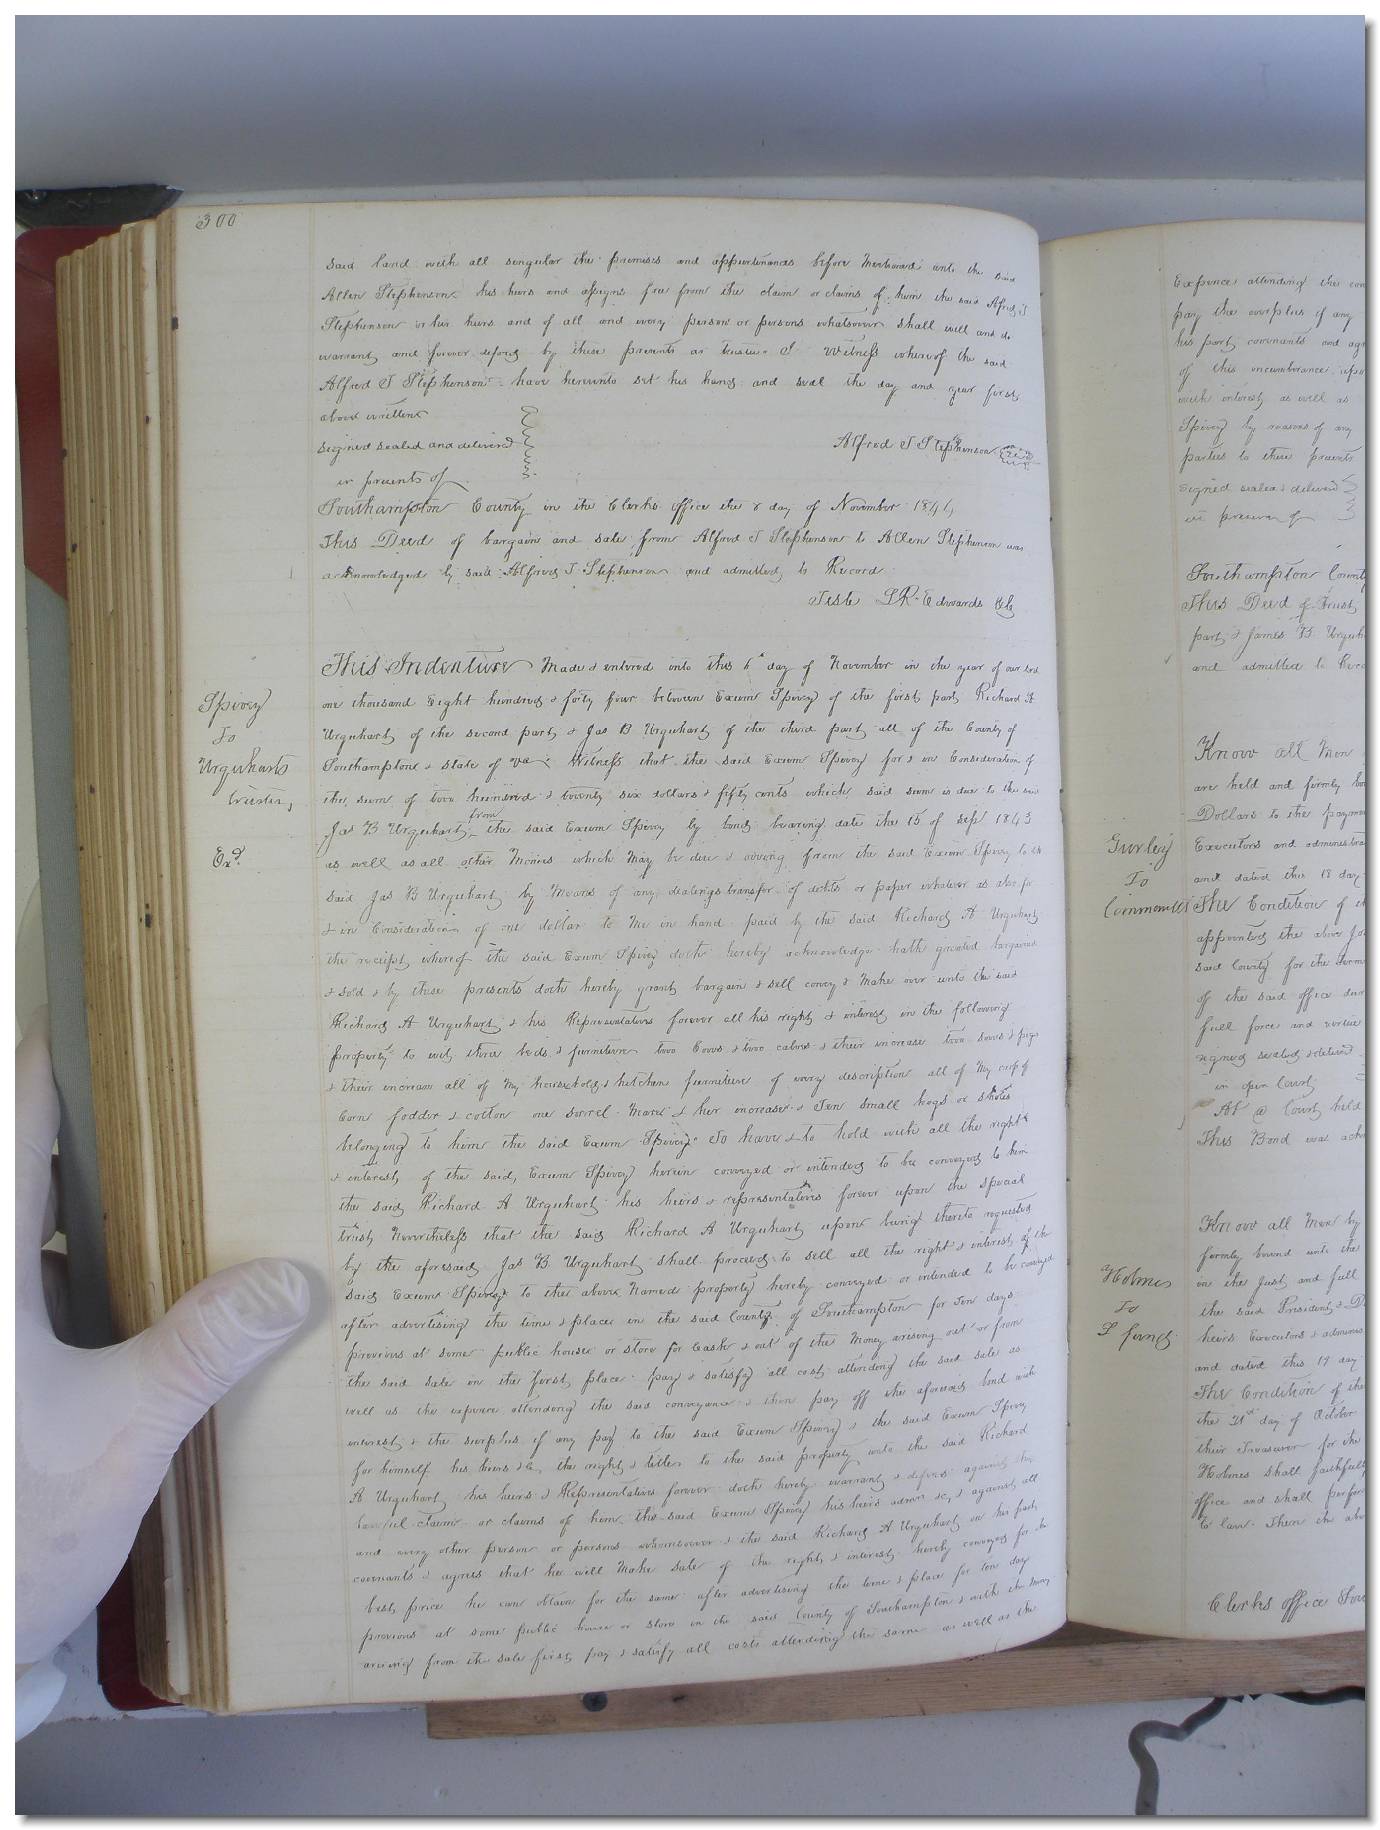 300
said land with all singular the premises and appurtenances before Mentioned unto the said
Allen Stephenson his heirs and assigns free from the claim or claims of him the said Alfred J
Stephenson or his heirs and of all and every person or persons whatsoever shall will and do
warrant and forever defend by these presents as trustee J Witness whereof the said
Alfred J Stephenson have hereunto set his hand and seal the day and year first
above written
signed sealed and delivered
in presents of
Alfred J Stephenson
Southampton County in the Clerks office the 8 day of November 1844
This Deed of bargain and sale from Alfred J Stephenson to Allen Stephenson was
acknowledged by said Alfred J Stephenson and admitted to Record
Teste LR Edwards Clk
Spivey
To
Urquharts
trustee
Exd.
This Indenture Made & entered into this 6th day of November in the year of our lord
one thousand Eight hundred & forty four between Exum Spivey of the first part Richard A
Urquhart of the second part & Jas B Urquhart of the third part all of the County of
Southampton & state of Va Witness that the said Exum Spivey for & in Consideration of
the sum of two hundred & twenty six dollars & fifty cents which said sum is due to the said
Jas B Urquhart from the said Exum Spivey by bond bearing date the 15 of Sept 1843
as well as all other Monies which May be due & owing from the said Exum Spivey to the
said Jas B Urquhart by Means of any dealings transfer of debts or paper whatever as also for
& in Consideration of one dollar to Me in hand paid by the said Richard A Urquhart
the receipt whereof the said Exum Spivey doth hereby acknowledge hath granted bargained
& sold & by these presents doth hereby grant bargain & sell convey & Make over unto the said
Richard A Urquhart & his Representatives forever all his right & interest in the following
property to wit three beds & furniture two Cows & two calves & their increase two sows & pigs
& their increase all of My household & kitchen furniture of every description all of My crop of
Corn fodder & cotton one sorrel Mare & her increase & Ten small hogs or shotes
belonging to him the said Exum Spivey To have & to hold with all the right
& interest of the said Exum Spivey herein conveyed or intended to be conveyed to him
the said Richard A Urquhart his heirs & representatives forever upon the special
trust Nevertheless that the said Richard A Urquhart upon being thereto requested
by the aforesaid Jas B Urquhart shall proceed to sell all the right & interest of the
said Exum Spivey to the above Named property hereby conveyed or intended to be conveyed
after advertising the time & place in the said County of Southampton for Ten days
previous at some public house or store for Cash & out of the Money arising out or from
the said sale in the first place pay & satisfy all cost attending the said sale as
well as the expence attending the said conveyance & then pay off the aforesaid bond with
interest & the surplus if any pay to the said Exum Spivey & the said Exum Spivey
for himself his heirs &c the right & title to the said property unto the said Richard
A Urquhart his heirs & Representatives forever doth hereby warrant & defend against the
lawful claim or claims of him the said Exum Spivey his heirs admrs &c & against all
and every other person or persons whomsoever & the said Richard A Urquhart on his part
covenants & agrees that he will Make sale of the right & interest hereby conveyed for the
best price he can obtain for the same after advertising the time & place for ten day
previous at some public house or store in the said County of Southampton & with the money
arising from the sale first pay & satisfy all costs attending the same as well as the
Expence attending this
pay the overplus if any
his part covenants and
of this incumberance
with interest as well as
Spivey by reasons of any
parties to these presents
signed sealed & delivered
in presence of
Southampton County
This Deed of Trust
part & James B
and admitted to
Gurley
To
Commonwealth
Know all Men
are held and firmly
Dollars to the
Executors and
and dated this 18 day
The Condition of
appointed the above
said County for the
of the said office
full force and virtue
signed sealed & delivered
in open Court
At a Court held
This Bond was
Holmes
To
S fund
Know all Men by
firmly bound unto the
in the Just and full
the said President &
heirs Executors &
and dated this 19 day
The Condition of the
the 21st day of October
their Treasurer for the
Holmes shall faithfully
office and shall
to law Then the
Clerks office